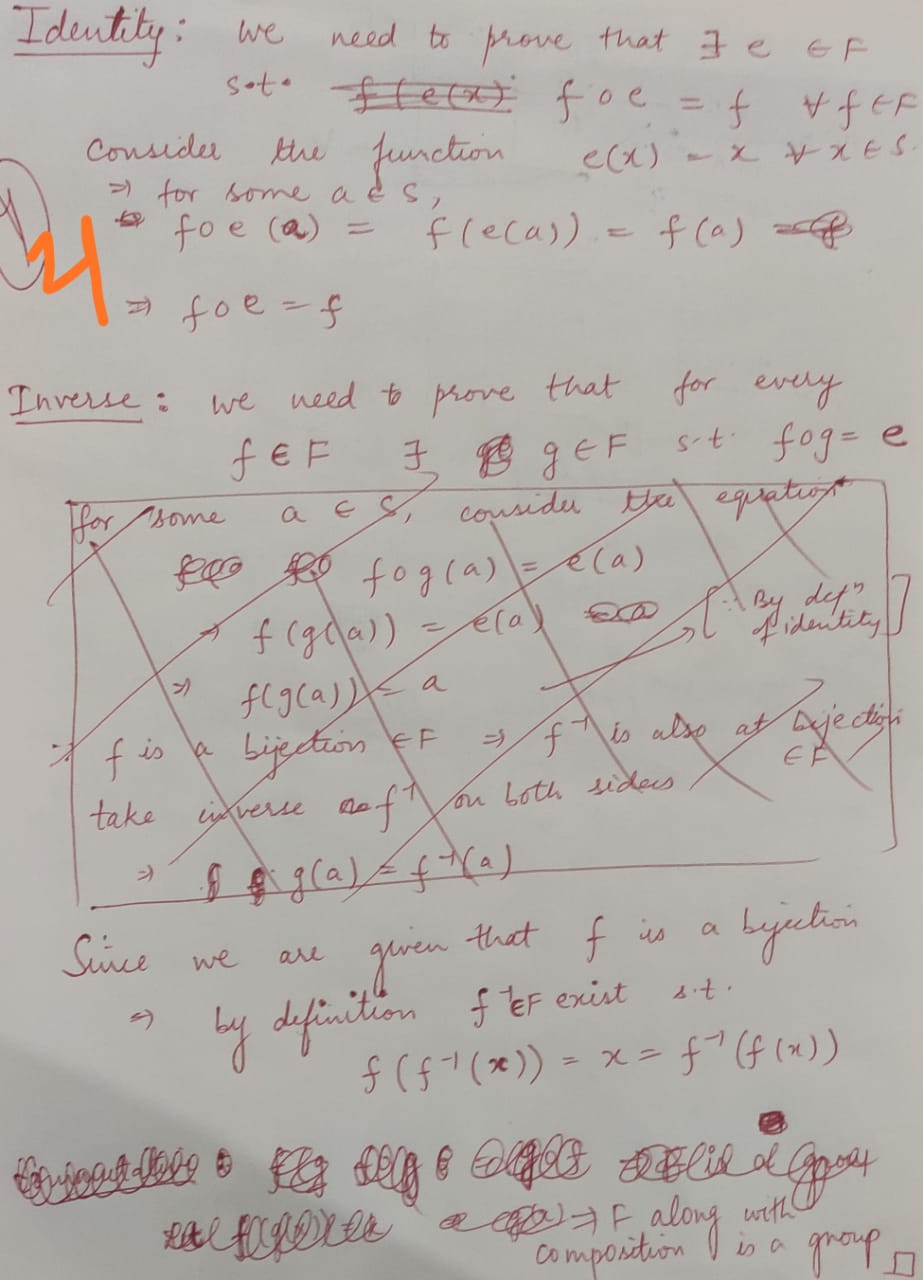 Identity: we need to prove that ∃ e ∈ F
s.t. f(e(x)) f o e = f ∀ f ∈ F
Consider the function e(x) = x ∀ x ∈ S.
⇒ for some a ∈ S,
f o e (a) = f(e(a)) = f(a)
4
⇒ f o e = f
Inverse: we need to prove that for every
f ∈ F ∃ g ∈ F s.t. fog = e
for some a ∈ S, consider the equation
fog(a) = e(a)
⇒ f(g(a)) = e(a) [∵ By defⁿ of identity]
⇒ f(g(a)) = a
∵ f is a bijection ∈ F ⇒ f⁻¹ is also at bijection ∈ F
take inverse f⁻¹ on both siders
⇒ g(a) = f⁻¹(a)
Since we are given that f is a bijection
⇒ by definition f⁻¹∈F exist s.t.
f(f⁻¹(x)) = x = f⁻¹(f(x))
⇒ F along with
composition is a group □